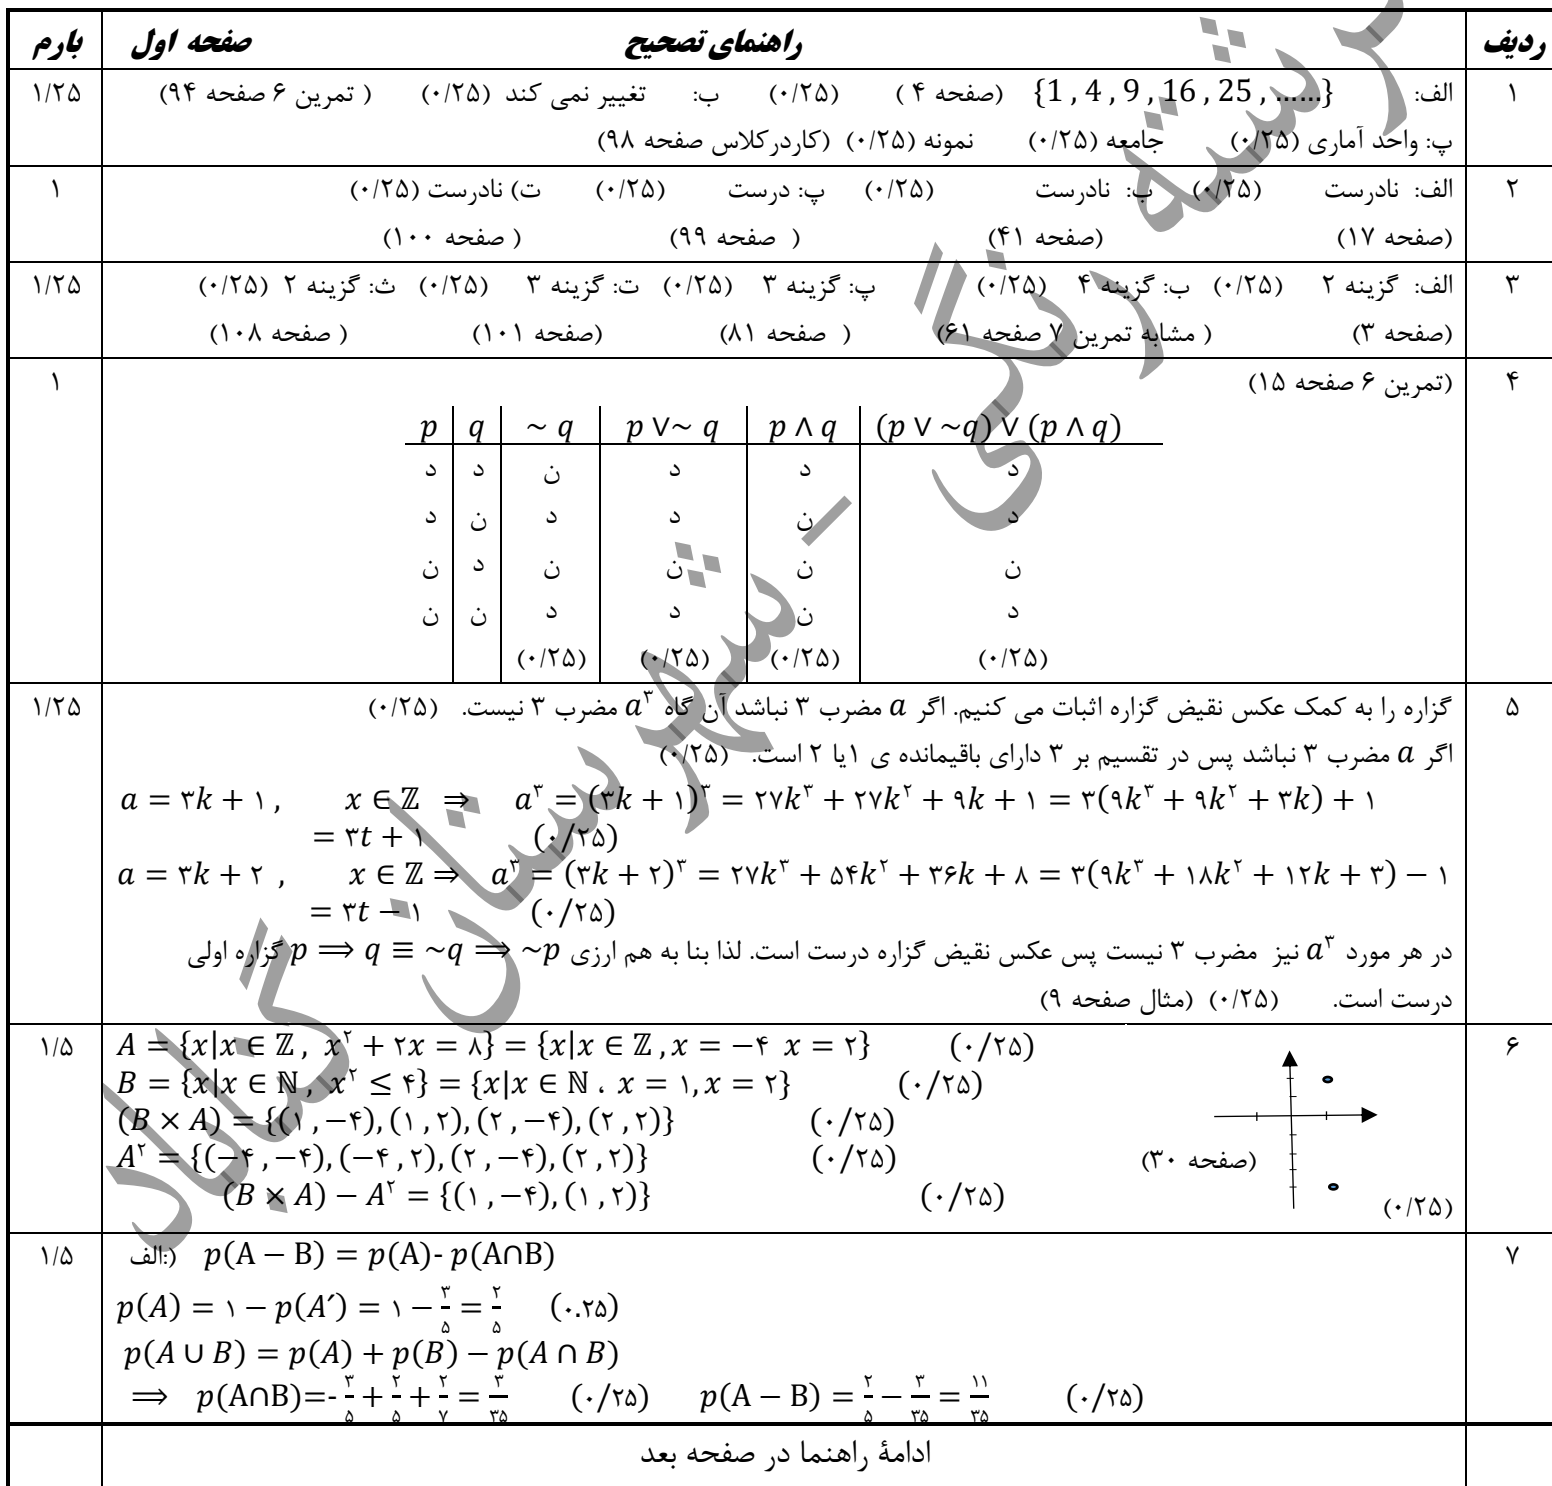 ردیف راهنمای تصحیح صفحه اول بارم
۱ الف: {1 , 4 , 9 , 16 , 25 , ......} (صفحه ۴ ) (۰/۲۵) ب: تغییر نمی کند (۰/۲۵) ( تمرین ۶ صفحه ۹۴) ۱/۲۵
پ: واحد آماری (۰/۲۵) جامعه (۰/۲۵) نمونه (۰/۲۵) (کاردرکلاس صفحه ۹۸)
۲ الف: نادرست (۰/۲۵) ب: نادرست (۰/۲۵) پ: درست (۰/۲۵) ت) نادرست (۰/۲۵) ۱
(صفحه ۱۷) (صفحه ۴۱) ( صفحه ۹۹) ( صفحه ۱۰۰)
۳ الف: گزینه ۲ (۰/۲۵) ب: گزینه ۴ (۰/۲۵) پ: گزینه ۳ (۰/۲۵) ت: گزینه ۳ (۰/۲۵) ث: گزینه ۲ (۰/۲۵) ۱/۲۵
(صفحه ۳) ( مشابه تمرین ۷ صفحه ۶۱) ( صفحه ۸۱) (صفحه ۱۰۱) ( صفحه ۱۰۸)
۴ (تمرین ۶ صفحه ۱۵) ۱
p q ~ q p ∨~ q p ∧ q (p ∨ ~q) ∨ (p ∧ q)
د د ن د د د
د ن د د ن د
ن د ن ن ن ن
ن ن د د ن د
(۰/۲۵) (۰/۲۵) (۰/۲۵) (۰/۲۵)
۵ گزاره را به کمک عکس نقیض گزاره اثبات می کنیم. اگر a مضرب ۳ نباشد آن گاه a³ مضرب ۳ نیست. (۰/۲۵) ۱/۲۵
اگر a مضرب ۳ نباشد پس در تقسیم بر ۳ دارای باقیمانده ی ۱یا ۲ است. (۰/۲۵)
a = ۳k + ۱ , x ∈ ℤ ⇒ a^۳ = (۳k + ۱)^۳ = ۲۷k^۳ + ۲۷k^۲ + ۹k + ۱ = ۳(۹k^۳ + ۹k^۲ + ۳k) + ۱
= ۳t + ۱ (۰/۲۵)
a = ۳k + ۲ , x ∈ ℤ ⇒ a^۳ = (۳k + ۲)^۳ = ۲۷k^۳ + ۵۴k^۲ + ۳۶k + ۸ = ۳(۹k^۳ + ۱۸k^۲ + ۱۲k + ۳) − ۱
= ۳t − ۱ (۰/۲۵)
در هر مورد a^۳ نیز مضرب ۳ نیست پس عکس نقیض گزاره درست است. لذا بنا به هم ارزی p ⟹ q ≡ ~q ⟹ ~p گزاره اولی
درست است. (۰/۲۵) (مثال صفحه ۹)
۶ A = {x|x ∈ ℤ , x^۲ + ۲x = ۸} = {x|x ∈ ℤ , x = −۴ x = ۲} (۰/۲۵) ۱/۵
B = {x|x ∈ ℕ , x^۲ ≤ ۴} = {x|x ∈ ℕ ، x = ۱, x = ۲} (۰/۲۵)
(B × A) = {(۱ , −۴), (۱ , ۲), (۲ , −۴), (۲ , ۲)} (۰/۲۵)
A^۲ = {(−۴ , −۴), (−۴ , ۲), (۲ , −۴), (۲ , ۲)} (۰/۲۵) (صفحه ۳۰)
(B × A) − A^۲ = {(۱ , −۴), (۱ , ۲)} (۰/۲۵) (۰/۲۵)
۷ الف:) p(A − B) = p(A)- p(A∩B) ۱/۵
p(A) = ۱ − p(A′) = ۱ − ۳/۵ = ۲/۵ (۰.۲۵)
p(A ∪ B) = p(A) + p(B) − p(A ∩ B)
⟹ p(A∩B)=- ۳/۵ + ۲/۵ + ۲/۷ = ۳/۳۵ (۰/۲۵) p(A − B) = ۲/۵ − ۳/۳۵ = ۱۱/۳۵ (۰/۲۵)
ادامهٔ راهنما در صفحه بعد